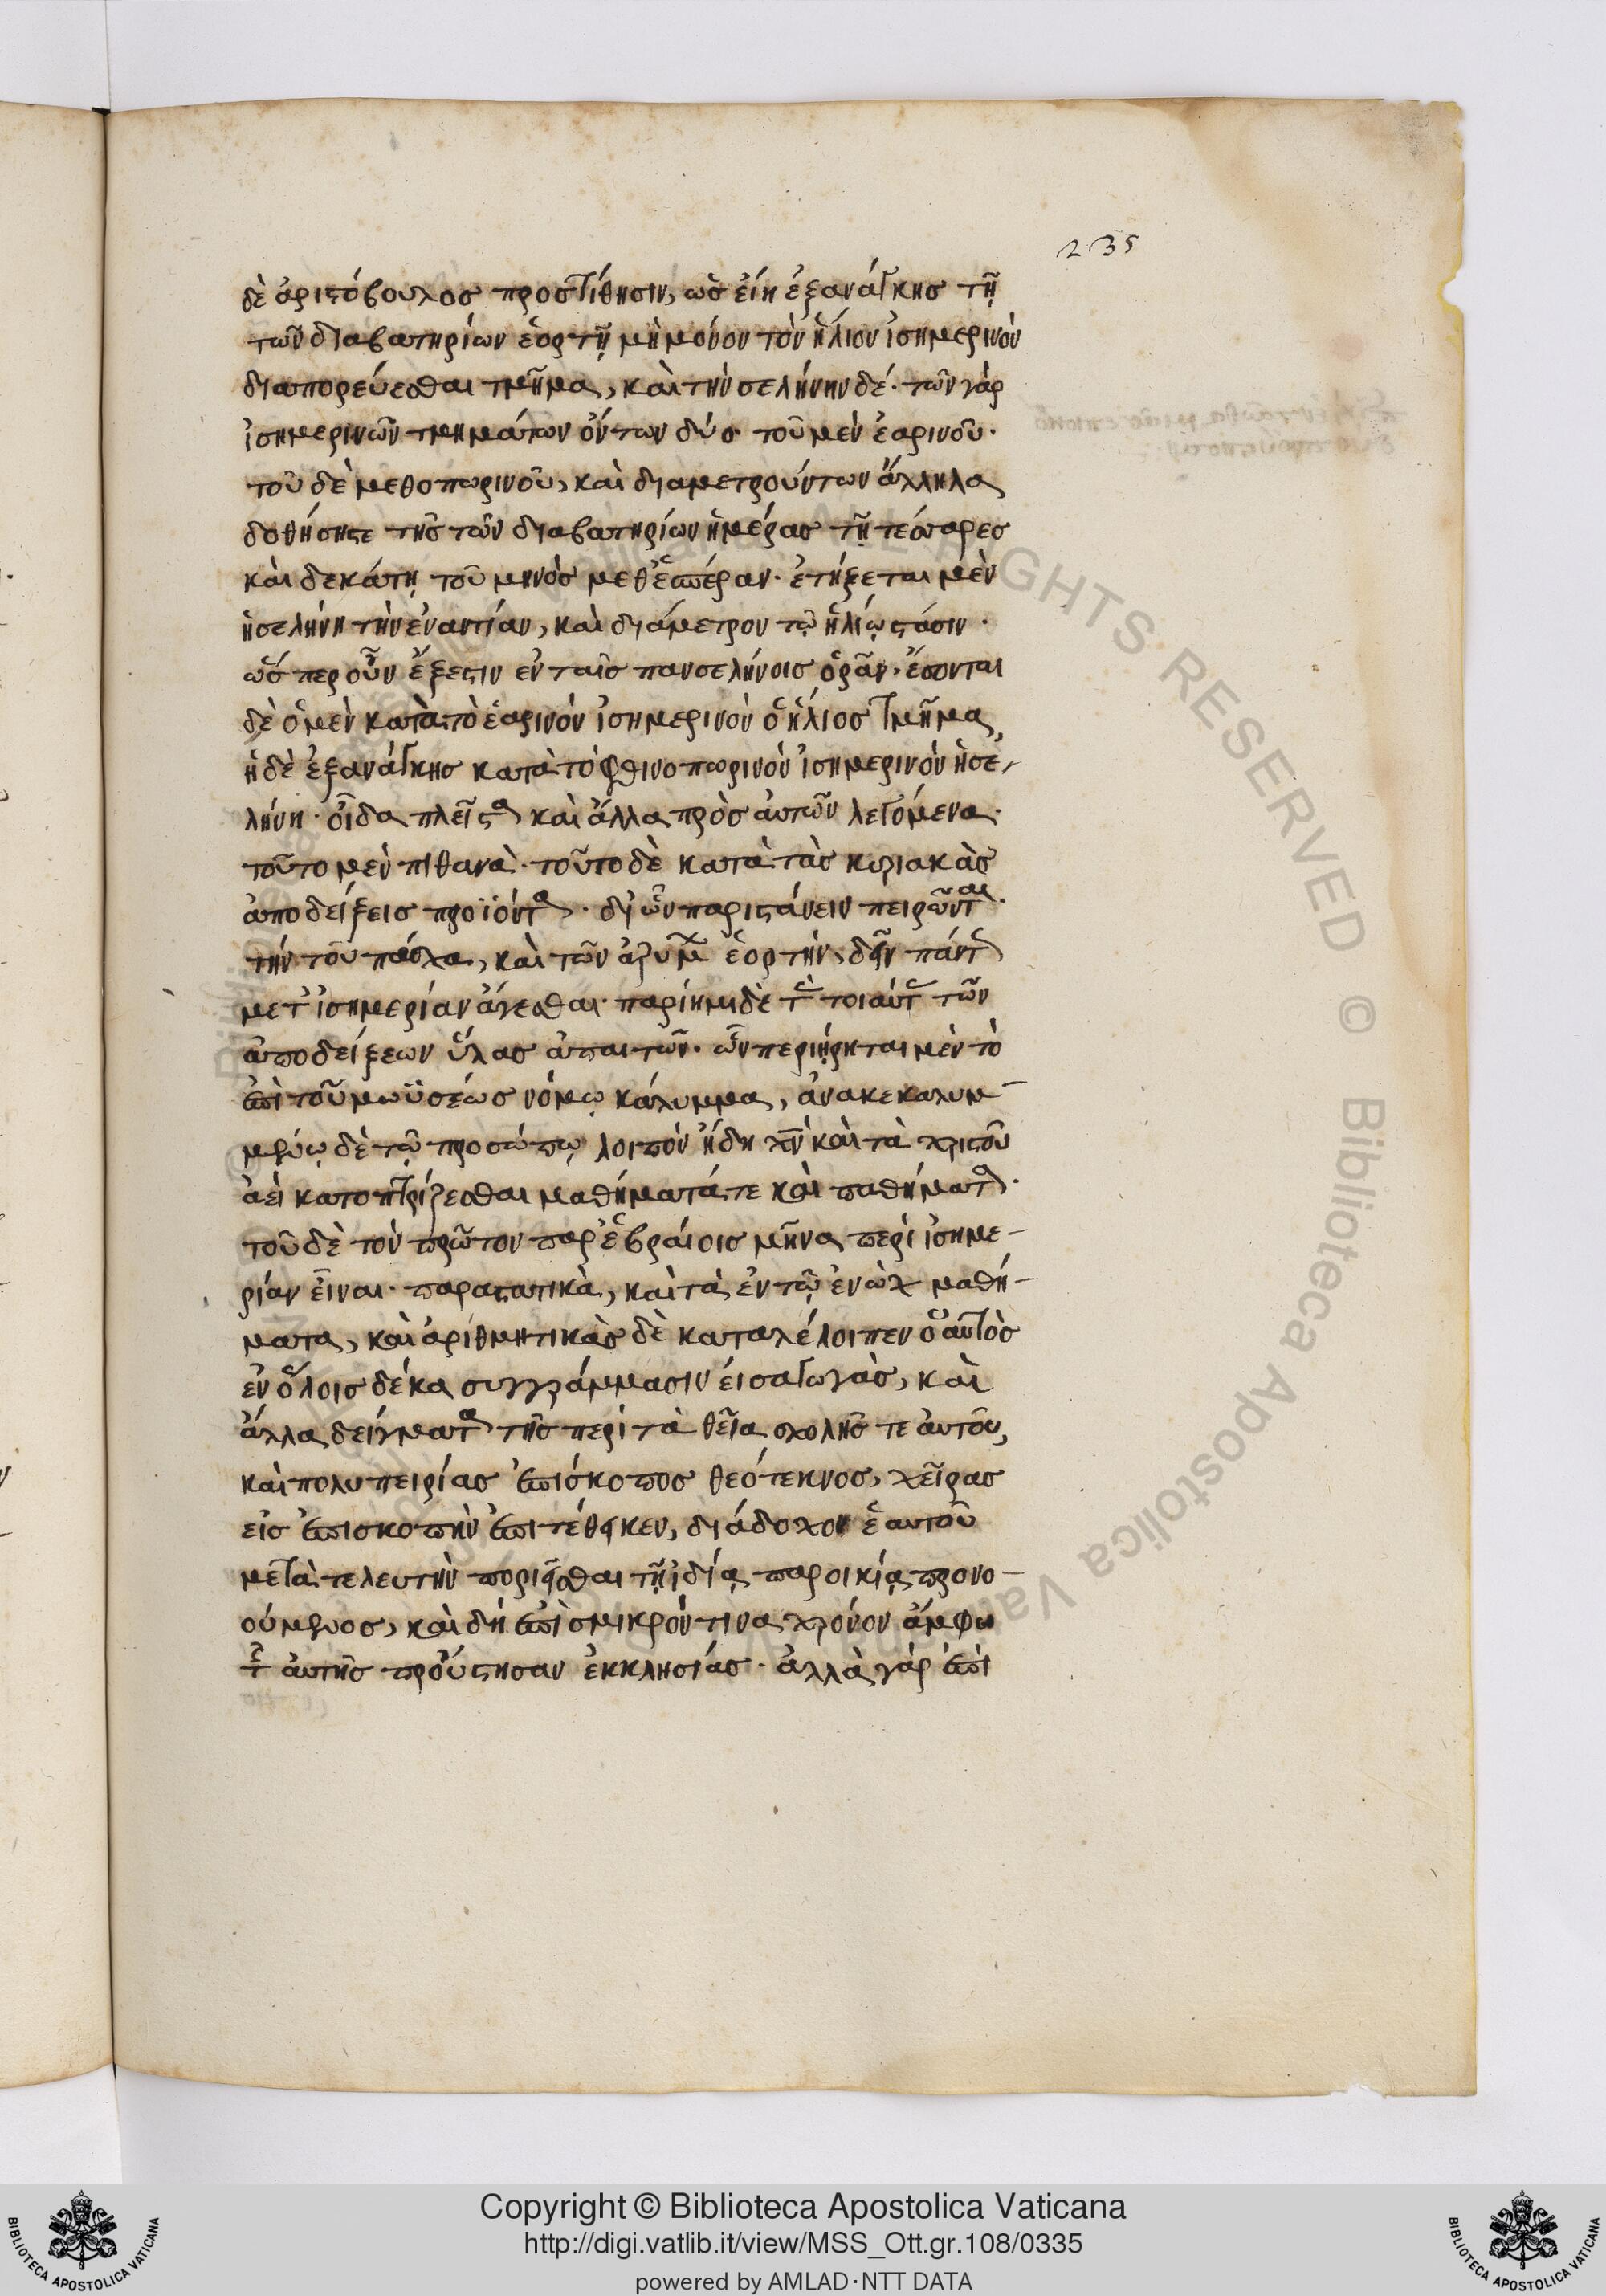 235
δὲ ἀριστόβουλος προστίθησιν, ὡς εἴη ἐξανάγκης τῇ
τῶν διαβατηρίων ἑορτῇ μὴ μόνον τὸν ἥλιον ἰσημερινὸν
διαπορεύεσθαι τμῆμα, καὶ τὴν σελήνην δέ· τῶν γὰρ
ἰσημερινῶν τμημάτων ὄντων δύο· τοῦ μὲν ἐαρινοῦ·
τοῦ δὲ μεθοπωρινοῦ, καὶ διαμετρούντων ἄλληλα
δοθήσης τε τῆς τῶν διαβατηρίων ἡμέρας τῇ τέσσαρες
καὶ δεκάτῃ τοῦ μηνὸς μεθ' ἑσπέραν· στήξεται μὲν
ἡ σελήνη τὴν ἐναντίαν, καὶ διάμετρον τῷ ἡλίῳ στάσιν·
ὥσπερ οὖν ἔξεστιν ἐν ταῖς πανσελήνοις ὁρᾶν· ἔσονται
δὲ ὁ μὲν κατὰ τὸ ἐαρινὸν ἰσημερινὸν ὁ ἥλιος τμῆμα,
ἡ δὲ ἐξανάγκης κατὰ τὸ φθινοπωρινὸν ἰσημερινὸν ἡ σε-
λήνη· οἶδα πλεῖστα καὶ ἄλλα πρὸς αὐτῶν λεγόμενα·
τοῦτο μὲν πιθανὰ· τοῦτο δὲ κατὰ τὰς κυριακὰς
ἀποδείξεις προϊόντα· δι' ὧν παριστάνειν πειρῶνται·
τὴν τοῦ πάσχα, καὶ τῶν ἀζύμων ἑορτὴν, δεῖν πάντως
μετ' ἰσημερίαν ἄγεσθαι· παρίημι δὲ τὰς τοιαύτας τῶν
ἀποδείξεων ὕλας ἀπαιτῶν· ὧν περιῄρηται μὲν τὸ
ἐπὶ τοῦ μωϋσέως νόμῳ κάλυμμα, ἀνακεκαλυμ-
μένῳ δὲ τῷ προσώπῳ λοιπὸν ἤδη χν καὶ τὰ χριστοῦ
ἀεὶ κατοπτρίζεσθαι μαθήματά τε καὶ παθήματα·
τοῦ δὲ τὸν πρῶτον παρ' ἑβραίοις μῆνα περὶ ἰσημε-
ρίαν εἶναι· παραστατικὰ, καὶ τὰ ἐν τῷ ἐνὼχ μαθή-
ματα, καὶ ἀριθμητικὰς δὲ καταλέλοιπεν ὁ αὐτὸς
ἐν ὅλοις δέκα συγγράμμασιν εἰσαγωγὰς, καὶ
ἄλλα δείγματα τῆς περὶ τὰ θεῖα σχολῆς τε αὐτοῦ,
καὶ πολυπειρίας ἐπίσκοπος θεότεκνος, χεῖρας
εἰς ἐπισκοπὴν ἐπιτέθηκεν, διάδοχον ἑαυτοῦ
μετὰ τελευτὴν ποριεῖσθαι τῇ ἰδίᾳ παροικίᾳ προνο-
ούμενος, καὶ δὴ ἐπὶ σμικρόν τινα χρόνον ἄμφω
τῆς αὐτῆς προύστησαν ἐκκλησίας· ἀλλὰ γὰρ ἐπὶ
© Biblioteca Apostolica Vaticana
ALL RIGHTS RESERVED
BIBLIOTECA APOSTOLICA VATICANA
Copyright © Biblioteca Apostolica Vaticana
http://digi.vatlib.it/view/MSS_Ott.gr.108/0335
powered by AMLAD·NTT DATA
BIBLIOTECA APOSTOLICA VATICANA